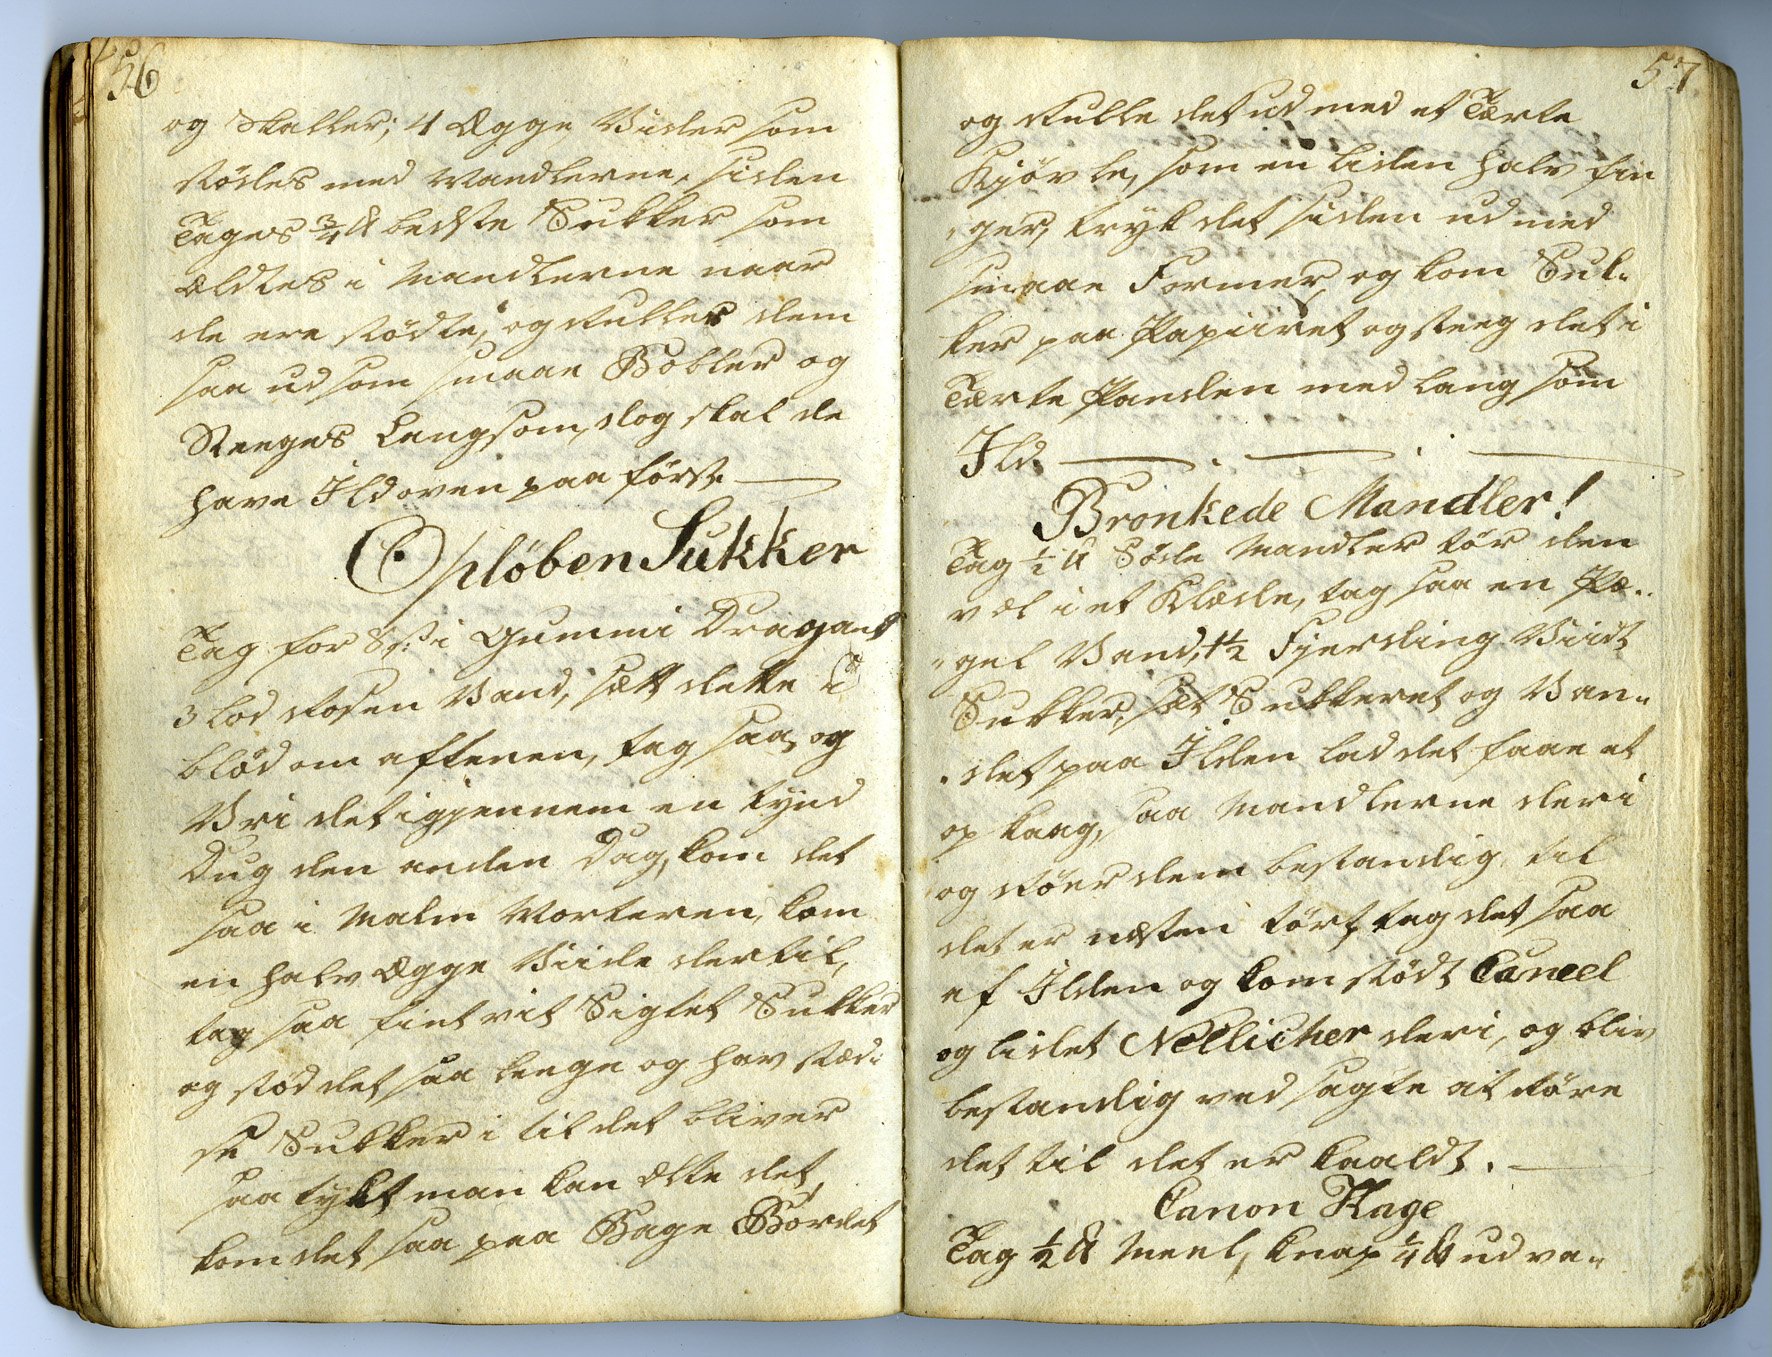 56
og Skaller; 4 Ægge Vider som
stødes med Mandlerne, siden
Tages ¾ ℔ bedste Sukker som
æltes i Mandlerne naar
de ere stødte, og Ruller dem
saa ud som smaae Bobler og
Steeges langsom, dog skal de
have Ild oven paa først
Opløben Sukker
Tag for 8 s: i Gummi Dragant
3 lod Rosen Vand, sætt dette i
blød om aftenen, tag saa, og
Vri det igjennem en tynd
Dug den anden Dag, kom det
saa i Malm Morteren, kom
en halv Ægge Viide dertil,
tag saa fint vit Siglet Sukker
og stød det saa lenge og hav stæd:
se Sukker i til det bliver
saa tykt man kan ælte det,
kom det saa paa Bage Bordet
57
og Rulle det ud med et Tærte
Kjøvle, som en liden halv fin
ger, tryk det siden ud med
smaae Former, og kom Suk-
ker paa Papiiret og steeg det i
Tærte Panden med langsom
Ild.
Bronkede Mandler!
Tag ½ ℔ Søde Mandler tør dem
vel i et Klæde, tag saa en Pæ-
gel Vand, 1½ Fjerding Viidt
Sukker, sæt Sukkeret og Van-
det paa Ilden lad det faae et
opkaag, saa Mandlerne deri
og Røer dem bestandig til
det er næsten tørt, tag det saa
af Ilden og kom stødt Caneel
og lidet Nellicher deri, og bliv
bestandig ved sagte at Røre
det til det er kaaldt.
Canon Kage
Tag ½ ℔ Meel, knap ¼ ℔ udva-